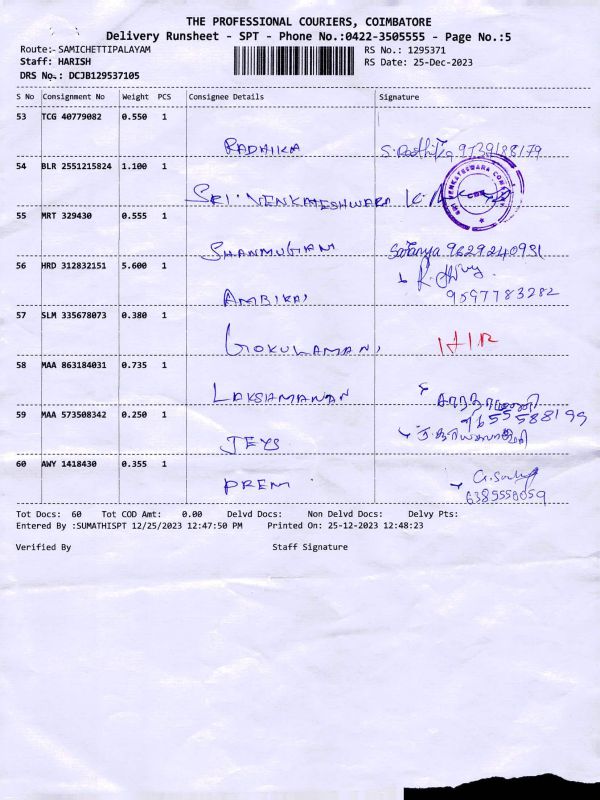 THE PROFESSIONAL COURIERS, COIMBATORE
Delivery Runsheet - SPT - Phone No.:0422-3505555 - Page No.:5
Route:- SAMICHETTIPALAYAM RS No.: 1295371
Staff: HARISH RS Date: 25-Dec-2023
DRS No.: DCJB129537105
S No Consignment No Weight PCS Consignee Details Signature
53 TCG 40779082 0.550 1
RADHIKA
54 BLR 2551215824 1.100 1
SRI. VENKATESHWARA
55 MRT 329430 0.555 1
SHANMUGAM 9629240951
56 HRD 312832151 5.600 1
AMBIKA, 9597783282
57 SLM 335678073 0.380 1
GOKULAMANI, HIR
58 MAA 863184031 0.735 1
LAKSHMANAN
59 MAA 573508342 0.250 1
JEYS
60 AWY 1418430 0.355 1
PREM
Tot Docs: 60 Tot COD Amt: 0.00 Delvd Docs: Non Delvd Docs: Delvy Pts:
Entered By :SUMATHISPT 12/25/2023 12:47:50 PM Printed On: 25-12-2023 12:48:23
Verified By Staff Signature